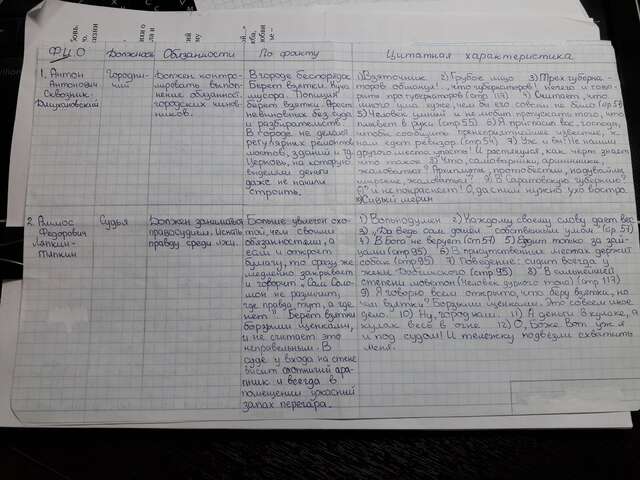 Ф.И.О Должность Обязанности По факту Цитатная характеристика
1. Антон
Антонович
Сквозник-
Дмухановский
Городни-
чий
Должен контро-
лировать выпол-
нение обязаннос-
городских чинов-
ников.
В городе беспорядок
Берет взятки. Куча
мусора. Полиция
берет взятки. Арест
невиновных без суда
и разбирательств.
В городе не делают
регулярных ремонтов
мостов, зданий и тд
Церковь, на которую
выделили деньги
даже не начали
строить.
1) Взяточник 2) Грубое лицо 3) Трех губерна-
торов обманул! ...что губернаторов! нечего и гово-
рить про губернаторов (стр 114) 4) Считает, что
много ума хуже, чем бы его совсем не было (стр 59)
5) Человек умный и не любит пропускать того, что
плывет в руки (стр 55) 6) Я пригласил вас, господа,
чтобы сообщить пренеприятнейшее известие, к
нам едет ревизор (стр 54) 7) Эк и вы! Не нашли
другого места упасть! И растянулся, как черт знает
что такое 8) Что, самоварники, аршинники,
жаловаться? Архиплуты, протобестии, надувайлы
мирские, жаловаться? 9) В Саратовскую губернию!
А? и не покраснеет! О, да с ним нужно ухо востро
Сивый мерин
2. Аммос
Федорович
Ляпкин-
Тяпкин
Судья
Должен заниматься
правосудием. Искать
правду среди лжи.
Больше увлечен охо-
той, чем своими
обязанностями, а
если и откроет
бумагу, то сразу же
медленно закрывает
и говорит „Сам Соло-
мон не разрешит,
где правда тут, а где
нет". Берет взятки
борзыми щенками,
и не считает это
неправильным. В
суде у входа на стене
висит охотничий арап-
ник и всегда в
помещении ужасный
запах перегара.
1) Вольнодумец 2) Каждому своему слову дает вес
3) „Да ведь сам дошел - собственным умом" (стр 57)
4) В Бога не верует (стр 57) 5) Ездит только за зай-
цами (стр 95) 6) В присутственных местах держит
собак (стр 95) 7) Поведение: сидит всегда у
жены Добчинского (стр 95) 8) В сильнейшей
степени моветон (человек дурного тона) (стр 117)
9) Я говорю всем открыто, что беру взятки, но
чем взятки? Борзыми щенками. Это совсем иное
дело. 10) Ну, город наш. 11) А деньги в кулаке, а
кулак весь в огне 12) О, Боже, вот уж я
и под судом! И тележку подвезли схватить
меня.